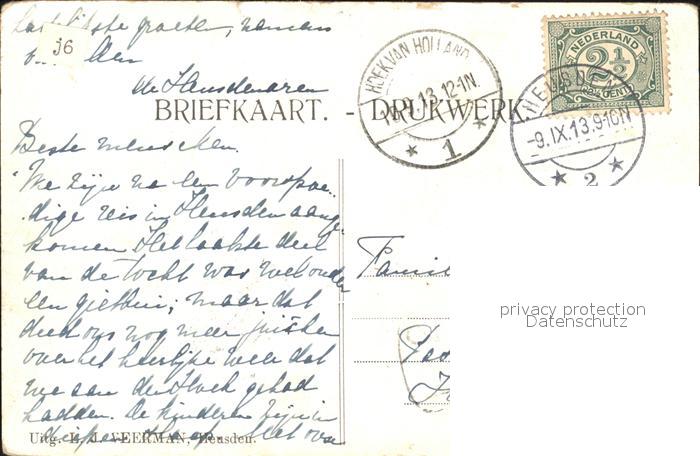 Hartelijkste groeten, namens
de Heusdenaren
36
BRIEFKAART. - DRUKWERK.
HOEK VAN HOLLAND
12-1N.
1
NEDERLAND
2½
CENT
HEUSDEN
-9.IX.13.9-10N
2
Beste menschen.
We zijn na een voorspoe-
dige reis in Heusden aange-
komen. Het laatste deel
van de tocht was wel onder
een gietbui; maar dat
deed ons nog meer juichen
over het heerlijke weer dat
we aan den Hoek gehad
hadden. De kinderen zijn in
Uitg. L. J. VEERMAN, Heusden.
Famil
privacy protection
Datenschutz